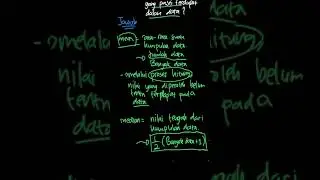 yang pasti terdapat
dalam data?
Jawab
mean = rata-rata suatu
kumpulan data
→ jumlah data
banyak data
- melalui proses hitung
nilai yang diperoleh belum
tentu terdapat pada
data
- melalui
nilai
tentu
data
hitung
belum
pada
median = nilai tengah dari
kumpulan data
→ 1/2 (banyak data + 1)